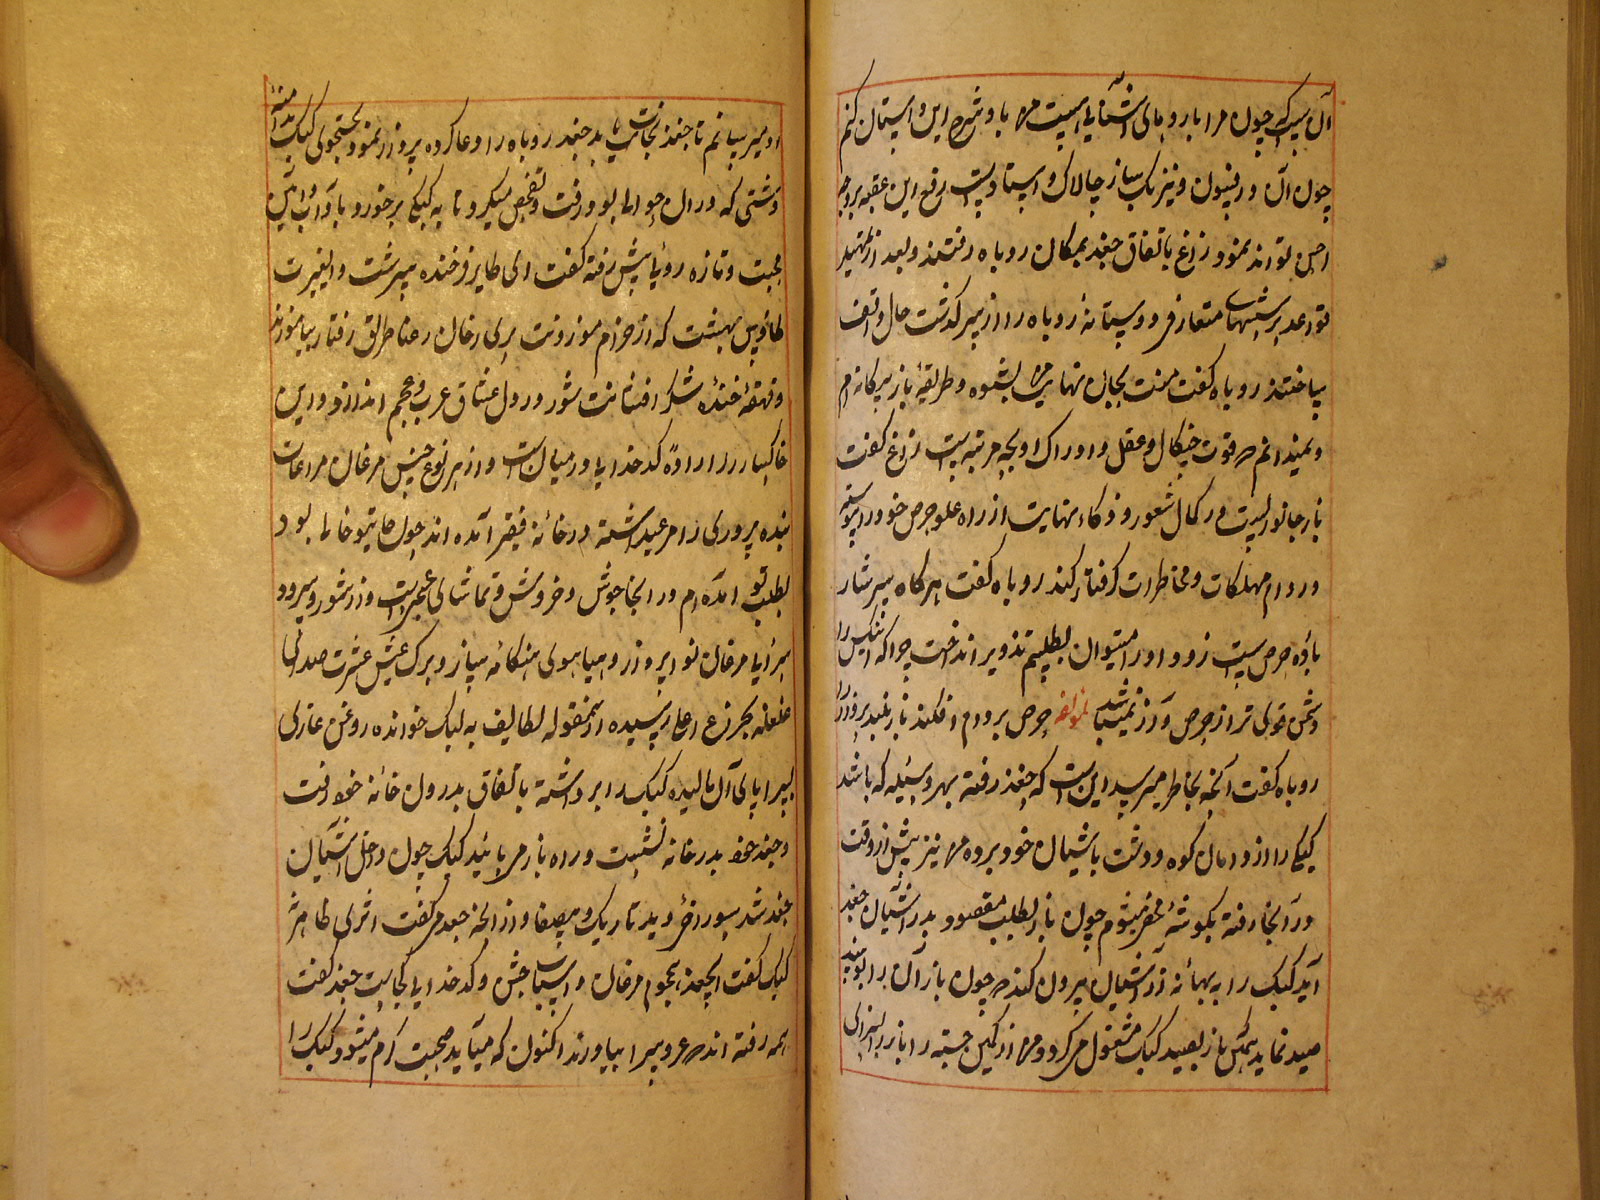 آن سبب که چون مرا با روباهی آشنائی است من با وی شرح این داستان کنم
چون آن در فنون و نیرنگ بسیار چالاک و استاد است رفع این عقبه بر وجه
احسن تواند نمود زاغ باتفاق جغد بمکان روباه رفتند و بعد از تمهید
قواعد پرسشهای متعارف دوستانه روباه را از سرگذشت حال واقف
ساختند روباه گفت منت بجان من اما این شیوه و طریقهٔ باز بیگانه‌ام
و نمیدانم که قوت چنگال و عقل و ادراک او بچه مرتبه است زاغ گفت
باز جانوریست در کمال شعور و ذکاء نهایت از راه غلو حرص خود را پیوسته
در دام مهلکات و مخاطرات گرفتار کند روباه گفت هرگاه سرشار
بادهٔ حرص است زود او را میتوان بطلسم تزویر انداخت چرا که هیچکس را
دشمن قوی تر از حرص و آز نمیباشد لمؤلفه حرص بر دام افکند باز بلند پرواز را
روباه گفت آنچه بخاطر میرسد این است که جغد رفته بهر وسیله که باشد
کبکی را از دامان کوه و دشت باشیان خود برده من نیز پیش از وقت
در آنجا رفته بگوشهٔ مخفی میشوم چون باز بطلب مقصود بدر آشیان جغد
آید کبک را به بهانه از آشیان بیرون کند که چون باز آن را بیند
صید نماید همین که باز بصید کبک مشغول گردد من از کمین جسته باز را بسزای
او میرسانم تا جغد نجات یابد جغد روباه را دعا کرده پرواز نمود بجستجوی کبک بدامنهٔ
دشتی که در آن حوالی بود رفت و تفحص میکرد تا به کبکی برخورد با آداب و آئین
محبت و تازه روئی پیش رفته گفت ای طایر فرخنده سرشت و ای غیرت
طاوس بهشت که از خرام موزونت پری رخان رعنا طریق رفتار بیاموزند
و قهقهٔ خندهٔ شکر افشانت شور در دل عشاق عرب و عجم اندازد و این
خاکسار را ارادهٔ کدخدایی در میان است و از هر نوع جنس مرغان مراعات
بنده پروری را مرعی داشته در خانهٔ فقیر آمده اند چون جای تو خالی بود
بطلب تو آمده‌ام در آنجا جوش و خروش و تماشای عجیبی است و از شور و سرود
سرایی مرغان نوا پرداز و هیاهوی هنگامه ساز و برگ عیش عشرت صدای
غلغله بچرخ اعلی رسیده از ینمقوله لطایف به کبک خوانده روغن غازی
بسراپای آن مالیده کبک را برداشته باتفاق بدرون خانهٔ خود رفت
و جغد خود بدر خانه نشست و راه باز می پائید کبک چون داخل آشیان
جغد شد سوراخی دید تاریک و بیصفا و از آنچه جغد میگفت اثری ظاهر نشد
کبک گفت ای جغد هجوم مرغان و اسباب جشن و کدخدایی کجاست جغد گفت
همه رفته اند که عروس را بیاورند اکنون که می آید صحبت گرم میشود کبک را